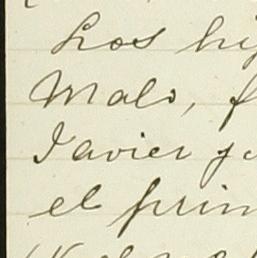 Los hi
Malo, f
Javier y
el prim